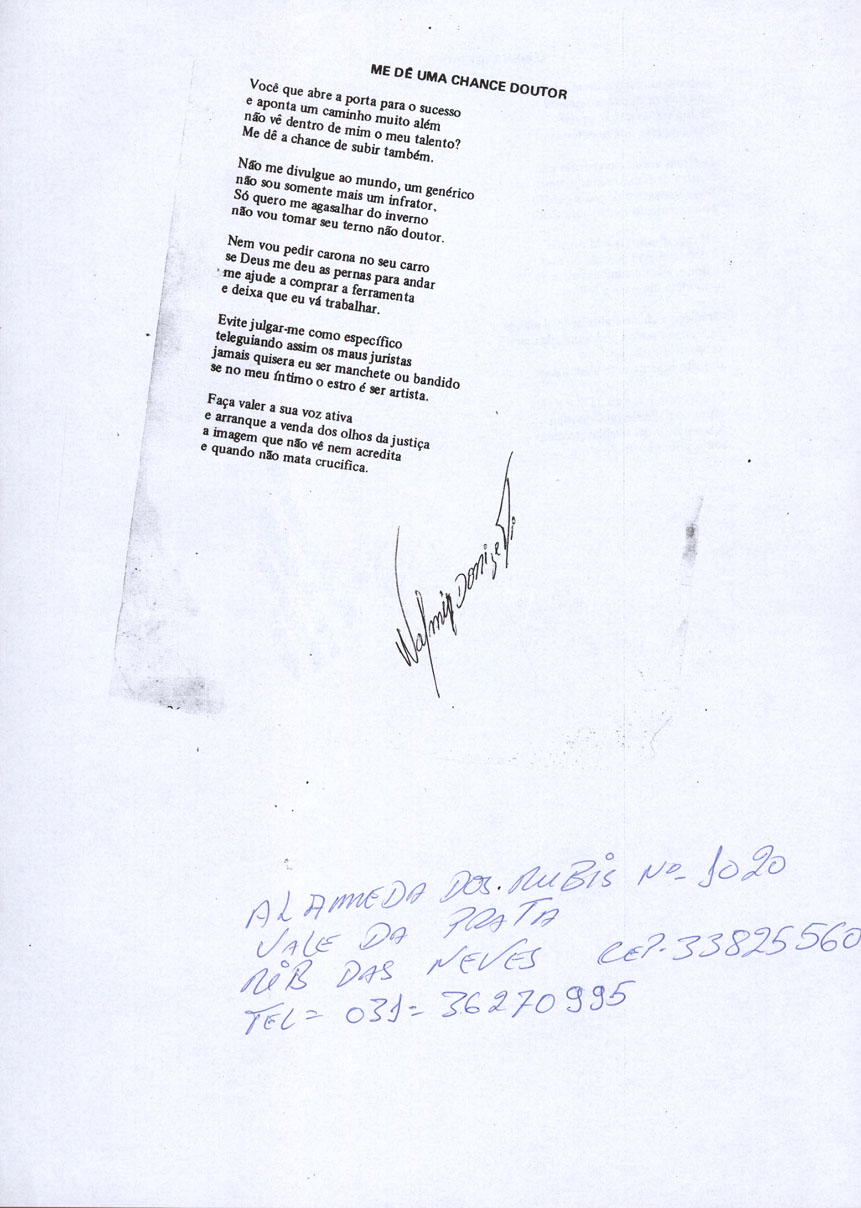 ME DÊ UMA CHANCE DOUTOR
Você que abre a porta para o sucesso
e aponta um caminho muito além
não vê dentro de mim o meu talento?
Me dê a chance de subir também.
Não me divulgue ao mundo, um genérico
não sou somente mais um infrator.
Só quero me agasalhar do inverno
não vou tomar seu terno não doutor.
Nem vou pedir carona no seu carro
se Deus me deu as pernas para andar
me ajude a comprar a ferramenta
e deixa que eu vá trabalhar.
Evite julgar-me como específico
teleguiando assim os maus juristas
jamais quisera eu ser manchete ou bandido
se no meu íntimo o estro é ser artista.
Faça valer a sua voz ativa
e arranque a venda dos olhos da justiça
a imagem que não vê nem acredita
e quando não mata crucifica.
ALAMEDA DOS RUBIS Nº 1020
VALE DA PRATA
RIB DAS NEVES CEP-33825560
TEL= 031= 36270995